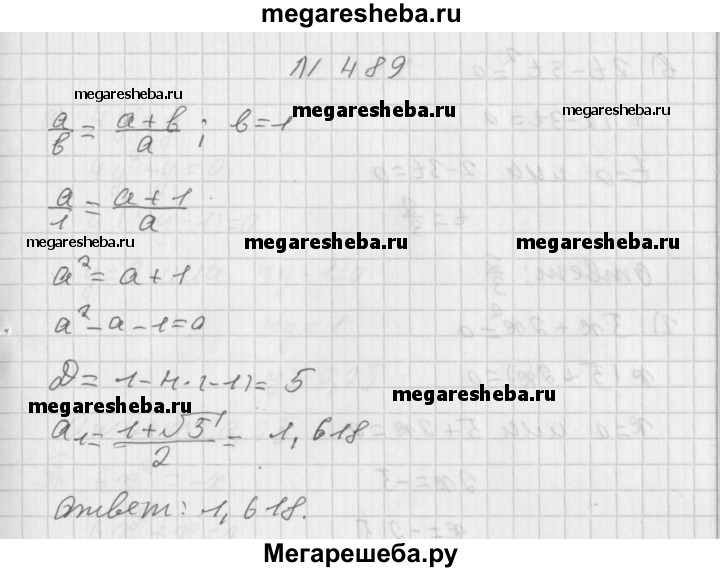 megaresheba.ru
№ 489
megaresheba.ru
megaresheba.ru
megaresheba.ru
a/b = (a+b)/a ; b=1
a/1 = (a+1)/a
megaresheba.ru
megaresheba.ru
megaresheba.ru
a² = a+1
a² - a - 1 = 0
D = 1 - 4·(-1) = 5
megaresheba.ru
megaresheba.ru
a₁ = (1+√5)/2 = 1,618
ответ: 1,618.
Мегарешеба.ру